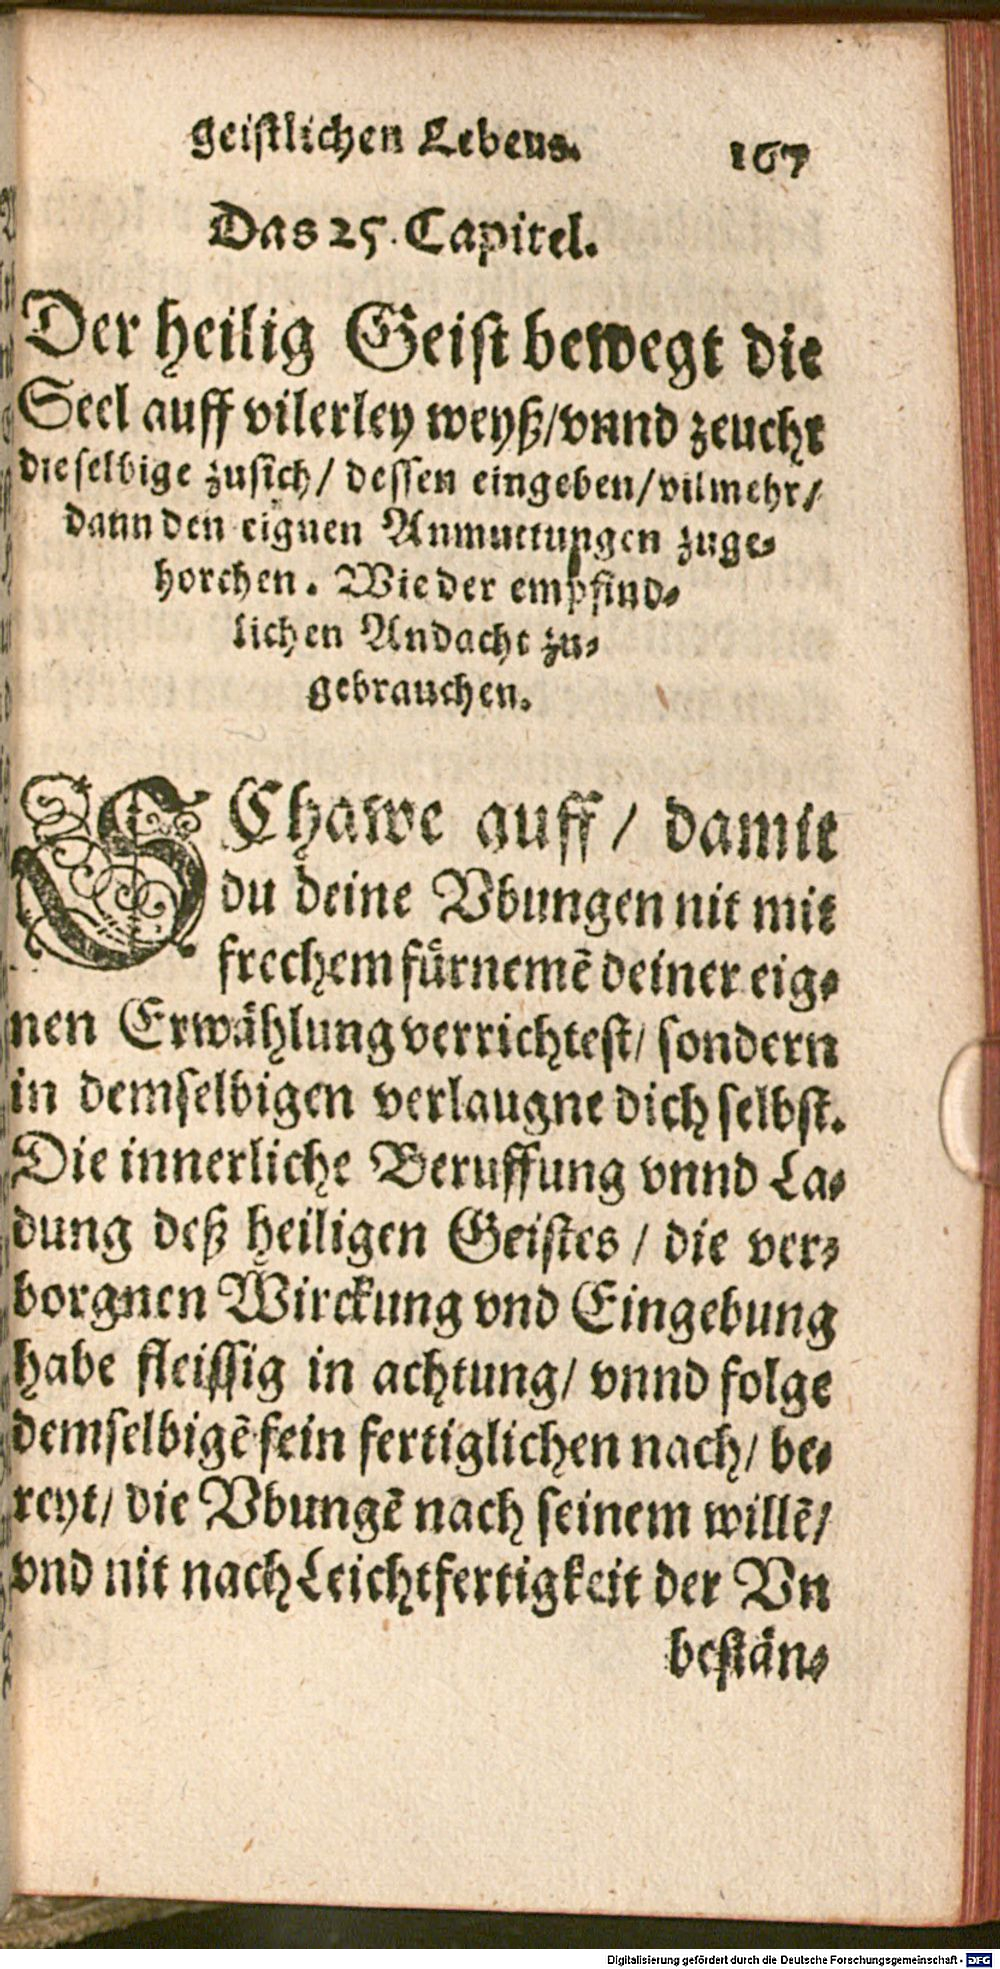 geistlichen Lebens. 167
Das 25. Capitel.
Der heilig Geist bewegt die
Seel auff vilerley weyß/vnnd zeucht
dieselbige zusich/ dessen eingeben/vilmehr/
dann den eignen Anmuttungen zuge-
horchen. Wie der empfind-
lichen Andacht zu-
gebrauchen.
SChawe auff/ damit
du deine Vbungen nit mit
frechem fürnemẽ deiner eig-
nen Erwählung verrichtest/ sondern
in demselbigen verlaugne dich selbst.
Die innerliche Beruffung vnnd La-
dung deß heiligen Geistes/ die ver-
borgnen Wirckung vnd Eingebung
habe fleissig in achtung/ vnnd folge
demselbigẽ fein fertiglichen nach/ be-
reyt/ die Vbungẽ nach seinem willẽ/
vnd nit nach Leichtfertigkeit der Vn
bestän-
Digitalisierung gefördert durch die Deutsche Forschungsgemeinschaft - DFG